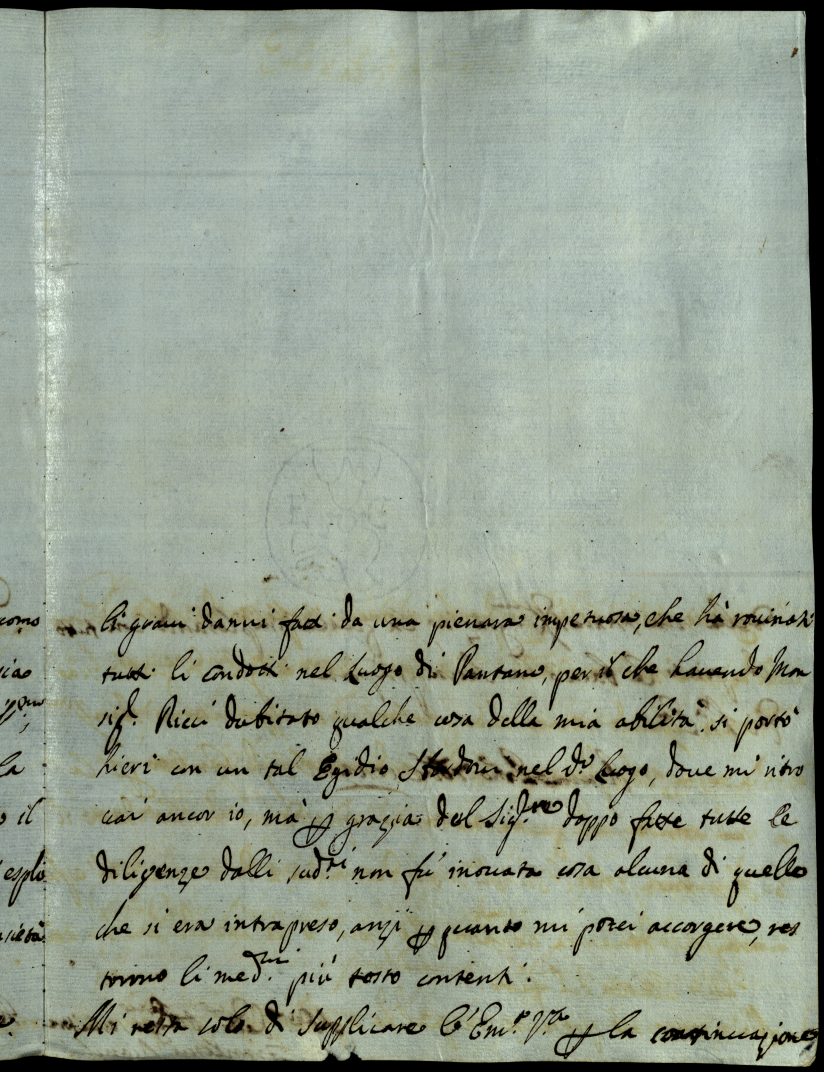 li gravi danni fatti da una pienara impetuosa, che hà rovinati
tutti li condotti nel Luogo di Pantano, per il che havendo Mon
sig.r Ricci dubitato qualche cosa della mia abilità si portò
hieri con un tal Egidio nel d.o Luogo, dove mi ritro
vai ancor io, mà p grazia del Sig.re doppo fatte tutte le
diligenze dalli sud.ti non fù inovata cosa alcuna di quelle
che si era intrapreso, anzi p quanto mi potei accorgere, res
torono li med.mi più tosto contenti.
Mi resta solo di supplicare l'Em.a V.a p la continuazione